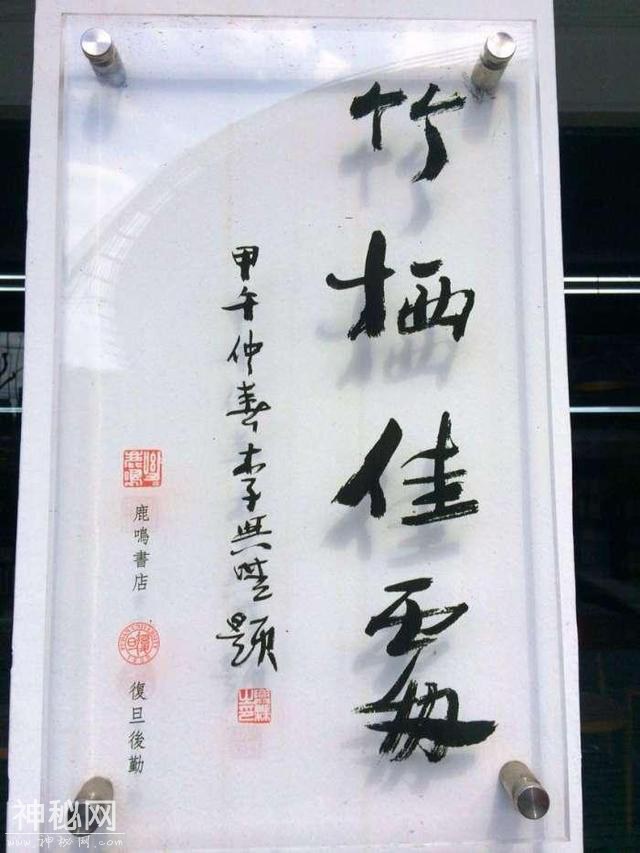 竹栖佳處
甲午仲春李題
鹿鳴書店
復旦後勤
神秘网
www.神秘网.com